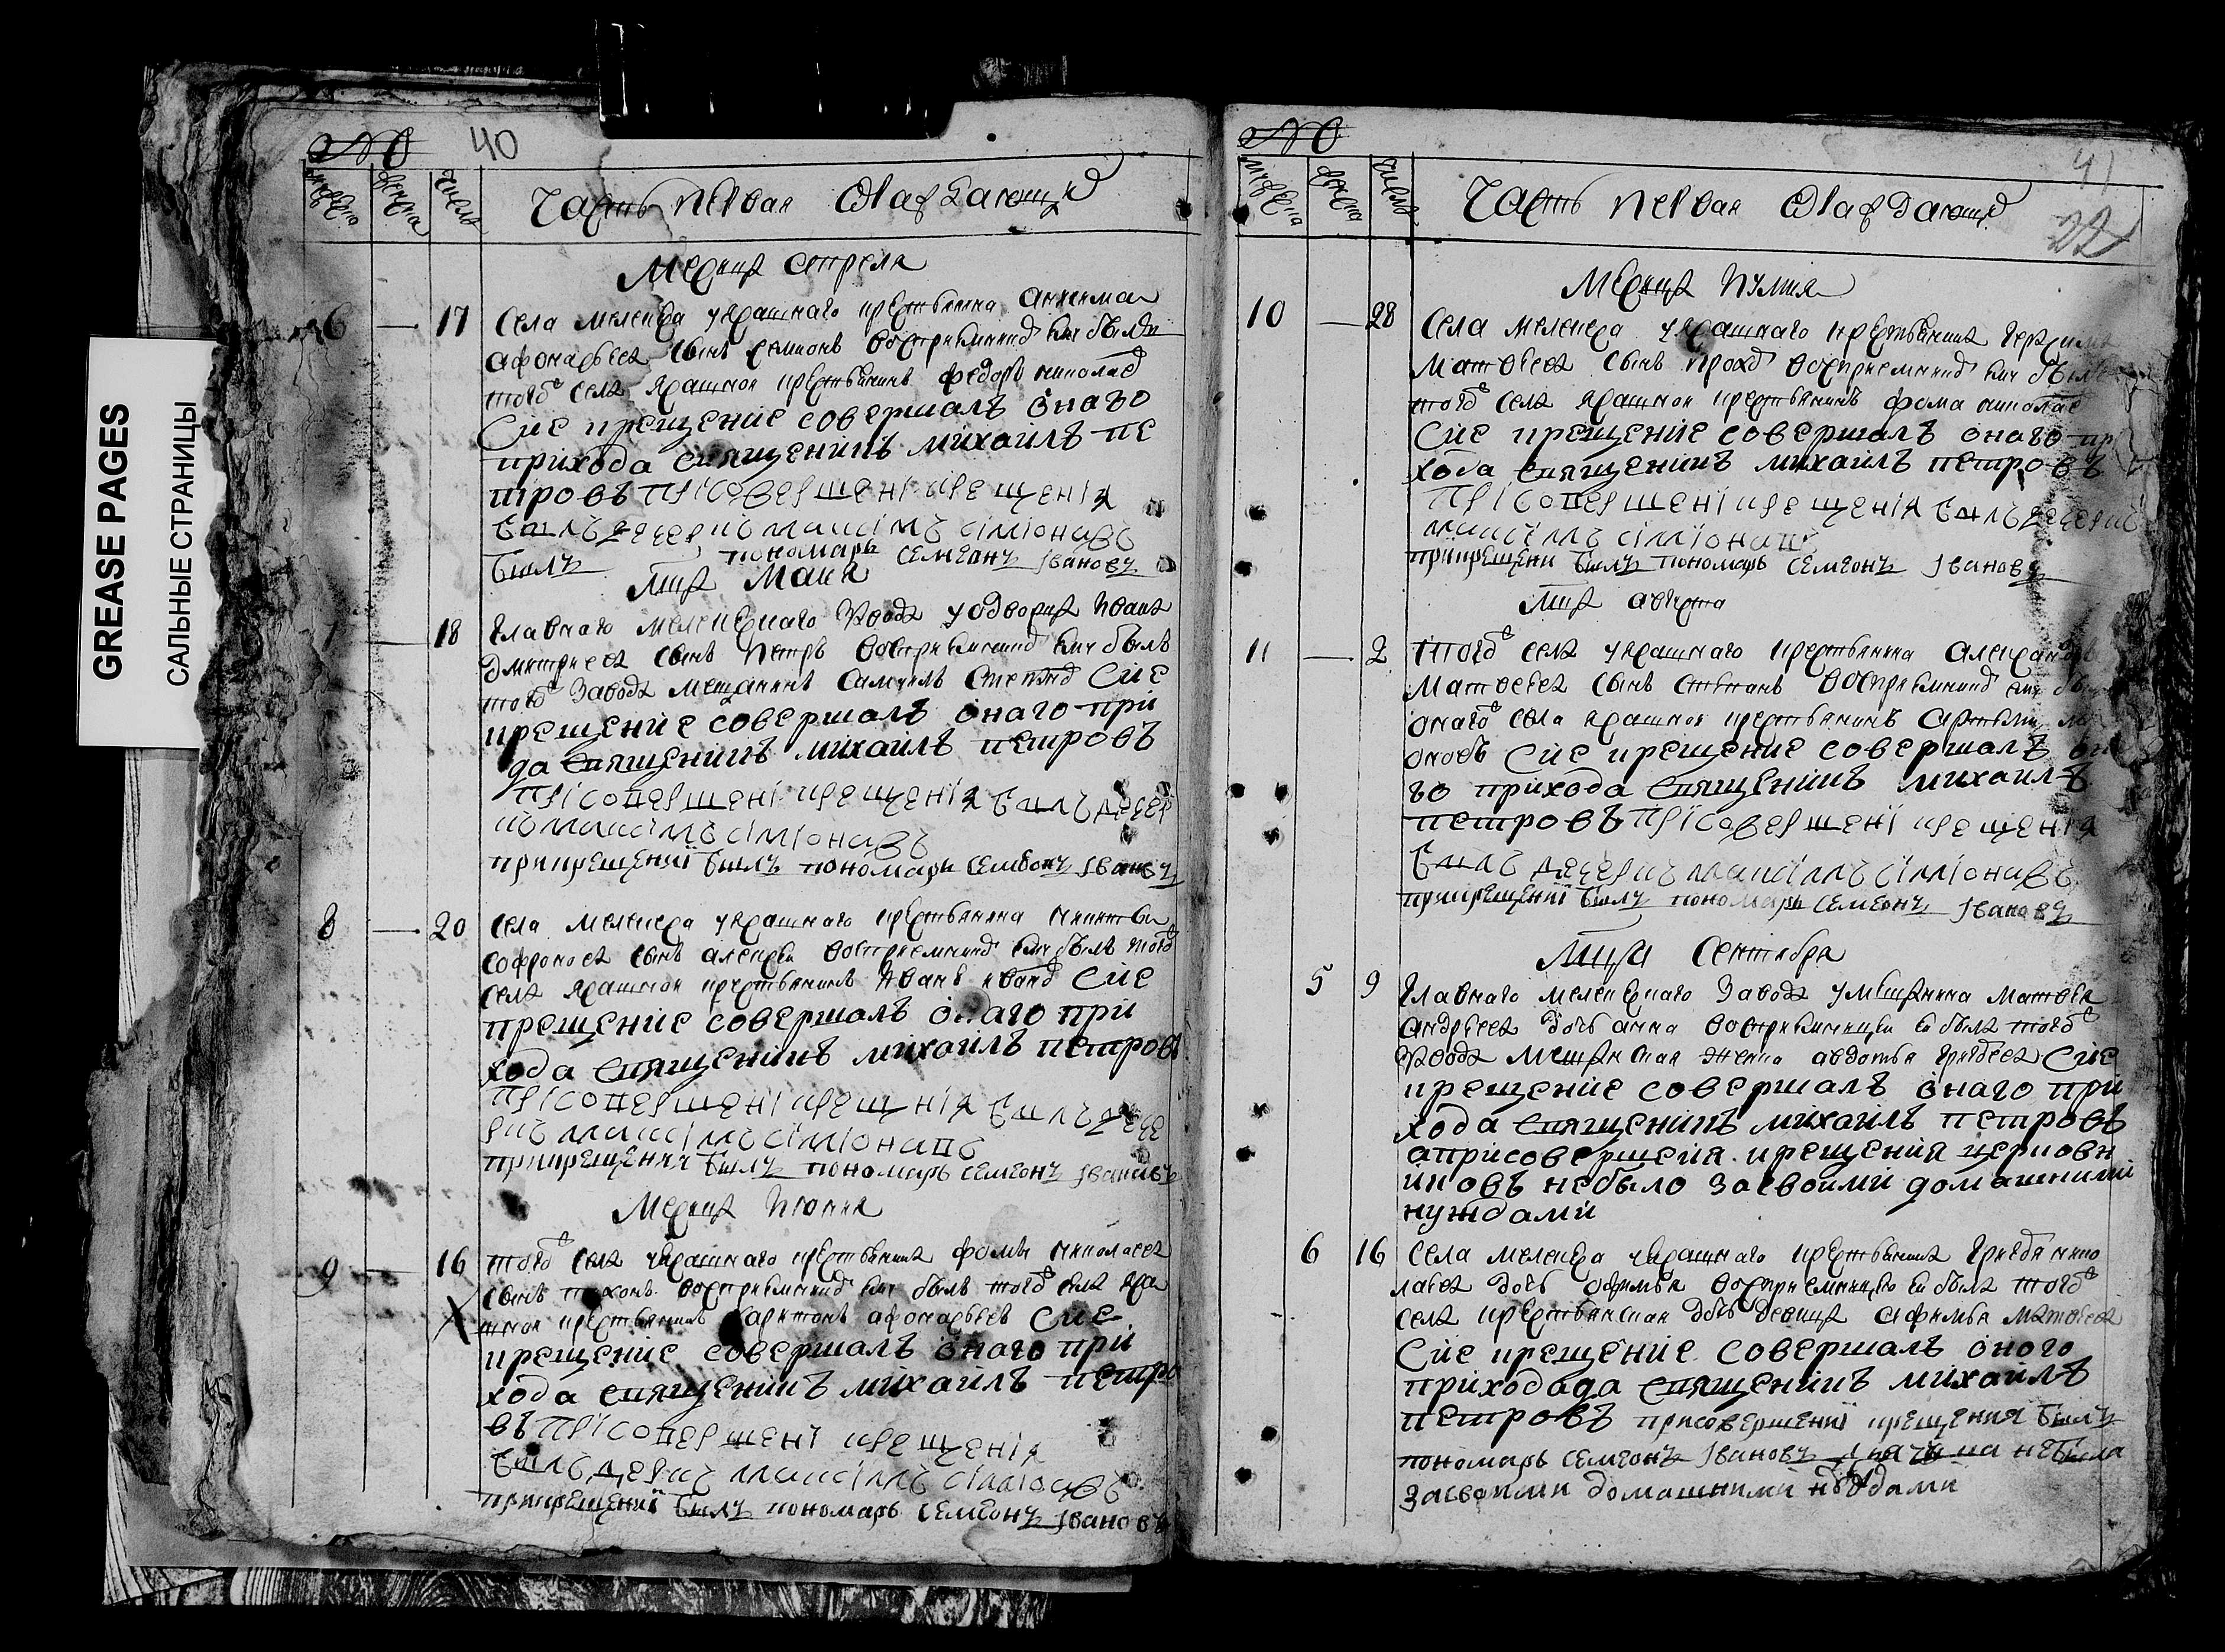 GREASE PAGES
САЛЬНЫЕ СТРАНИЦЫ
40
мужеска
женска
числа
Часть первая о раждающихся
Месяца апреля
6 — 17 Села меленска уясашнаго крестьянина
афонасьева сынъ семионъ восприемником ему былъ
того села ясашной крестьянинъ федоръ николаев
Сие крещение совершалъ онаго
прихода священникъ михаилъ пе
тровъ прi совершенi крещенiя
былъ дечекъ максiмъ сiмiонавъ
былъ пономарь семеонъ Iвановъ
мця маия
18 Главнаго завода удворца ивана
дмитриева сынъ петръ восприемником ему былъ
того завода мещанинъ самоилъ Сие
крещение совершалъ онаго при
да священникъ михаилъ петровъ
прi совершенi крещенiя былъ дечек
къ максiмъ сiмiонавъ
прикрещениї былъ пономарь семеонъ Iвановъ
8 — 20 села меленска уясашнаго крестьянина никиты
софронова сынъ алексеи восприемником ему былъ того
села ясашной крестьянинъ иванъ иванов Сие
крещение совершалъ онаго при
хода священникъ михаилъ петровъ
прi совершенi крещенiя былъ дече
ркъ максiмъ сiмiонавъ
прикрещении былъ пономарь семеонъ Iвановъ
Месяца июния
9 — 16 того села уясашнаго крестьянина фомы николаева
сынъ тихонъ восприемником ему былъ того села яса
шной крестьянинъ харитонъ афонасьевъ Сие
крещение совершалъ онаго при
хода священникъ михаилъ петро
въ прi совершенi крещенiя
былъ дечекъ максiмъ сiмiонавъ
прикрещениї былъ пономарь семеонъ Iвановъ
41
22
мужеска
женска
числа
Часть первая о раждающихся
Месяца иулия
10 — 28 Села меленска уясашнаго крестьянина герасима
матвеева сынъ прохор восприемником ему былъ
того села ясашной крестьянинъ фома николаев
Сие крещение совершалъ онаго при
хода священникъ михаилъ петровъ
прi совершенi крещенiя былъ дечерк
максiмъ сiмiонавъ
прикрещени былъ пономарь семеонъ Iвановъ
мця августа
11 — 2 того села уясашнаго крестьянина александра
матвеева сынъ степанъ восприемником ему былъ
онаго села ясашной крестьянинъ
оновъ Сие крещение совершалъ она
го прихода священникъ михаилъ
петровъ прi совершенї крещенiя
былъ дечеркъ максiмъ сiмiонавъ
прикрещениї былъ пономарь семеонъ Iвановъ
мця сентября
5 9 Главнаго завода умещанина матвея
андреева дочь анна восприемницеи еи была того
завода мещанская женка авдотья григорьева Сие
крещение совершалъ онаго при
хода священникъ михаилъ петровъ
априсовершеия крещения церковн
иковъ небыло засвоими домашними
нуждами
6 16 Села меленска уясашнаго крестьянина григорья нико
лаева дочь офимья восприемницею еи была того
села крестьянская дочь девица афимья матвеева
Сие крещение совершалъ оного
приходада священникъ михаилъ
петровъ присовершениї крещения былъ
пономарь семеонъ Iвановъ небыла
засвоими домашними нуждами